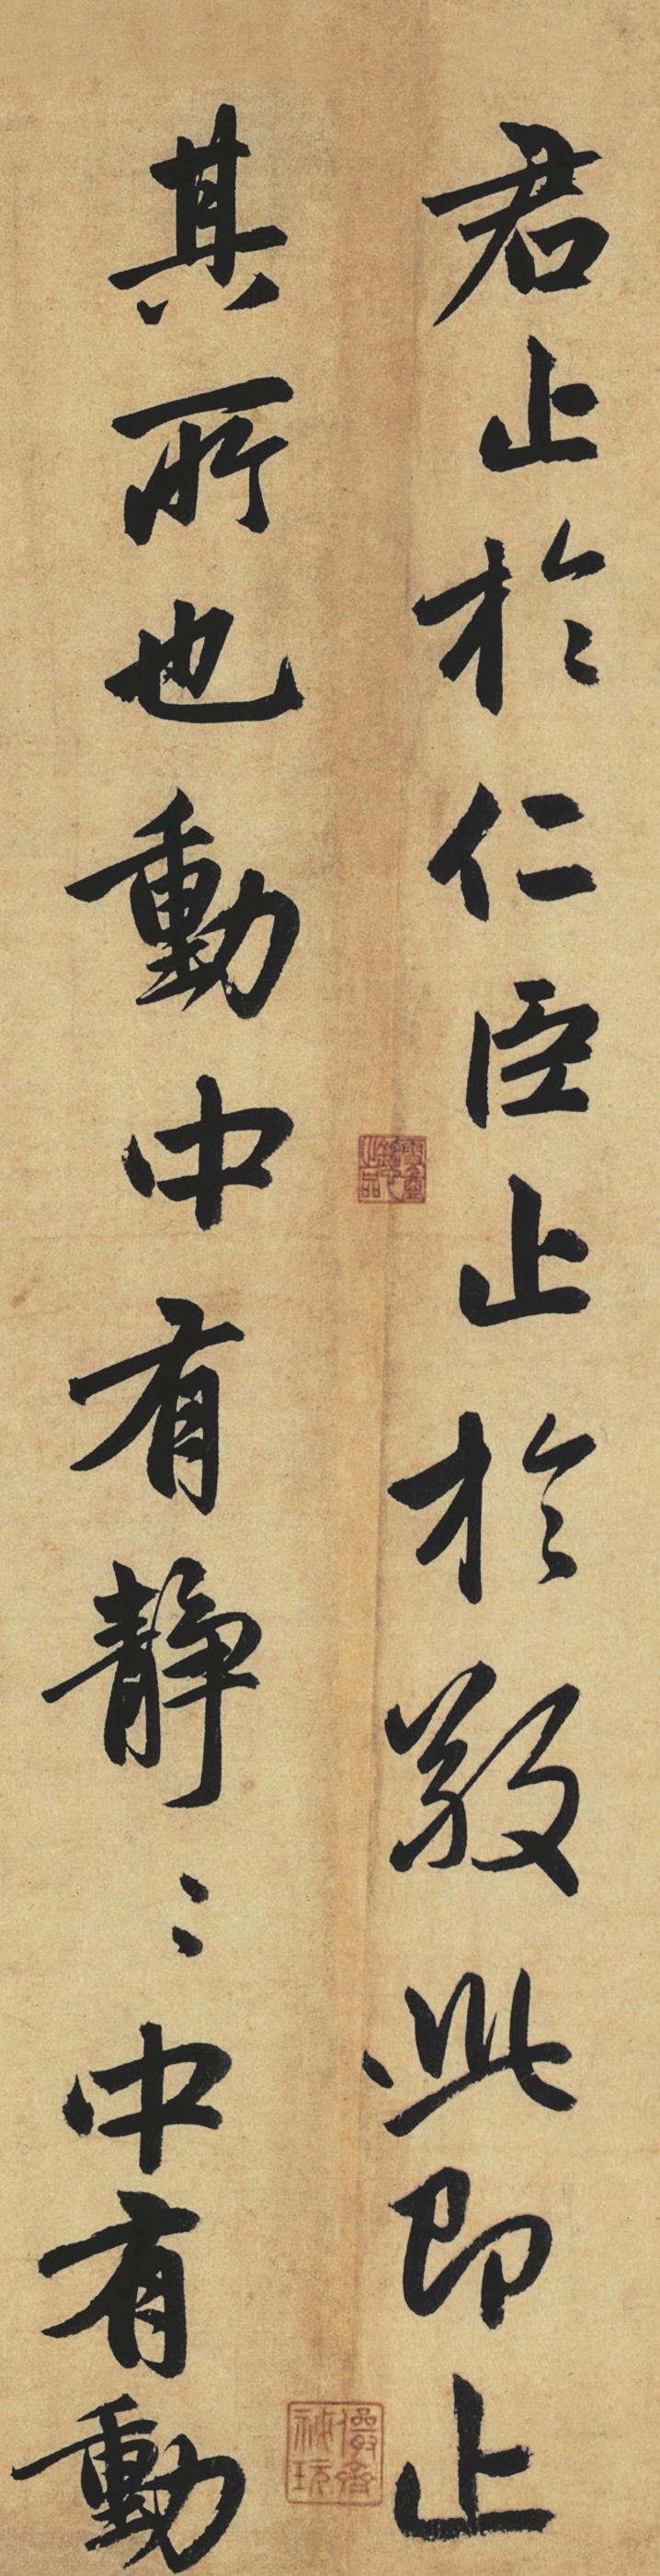 君止於仁臣止於敬此即止
其所也動中有静〻中有動